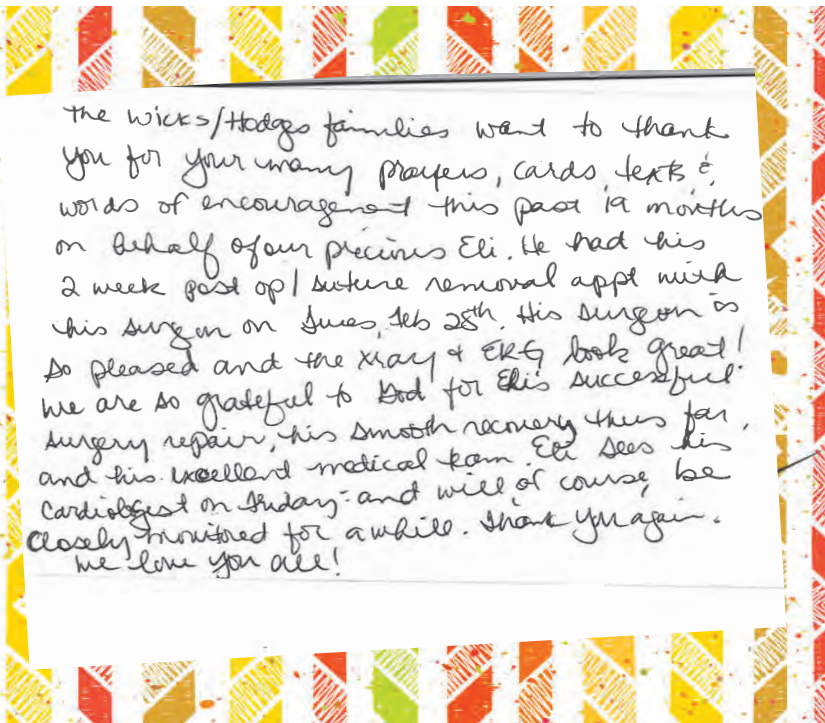 The Wicks/Hodges families want to thank
you for your many prayers, cards, texts &
words of encouragement this past 19 months
on behalf of our precious Eli. He had his
2 week post op/suture removal appt with
his surgeon on Tues, Feb 28th. His surgeon is
so pleased and the xray + EKG look great!
We are so grateful to God for Elis successful
surgery repair, his smooth recovery thus far,
and his excellent medical team. Eli sees his
Cardiologist on Friday - and will, of course, be
closely monitored for awhile. Thank you again.
We love you all!